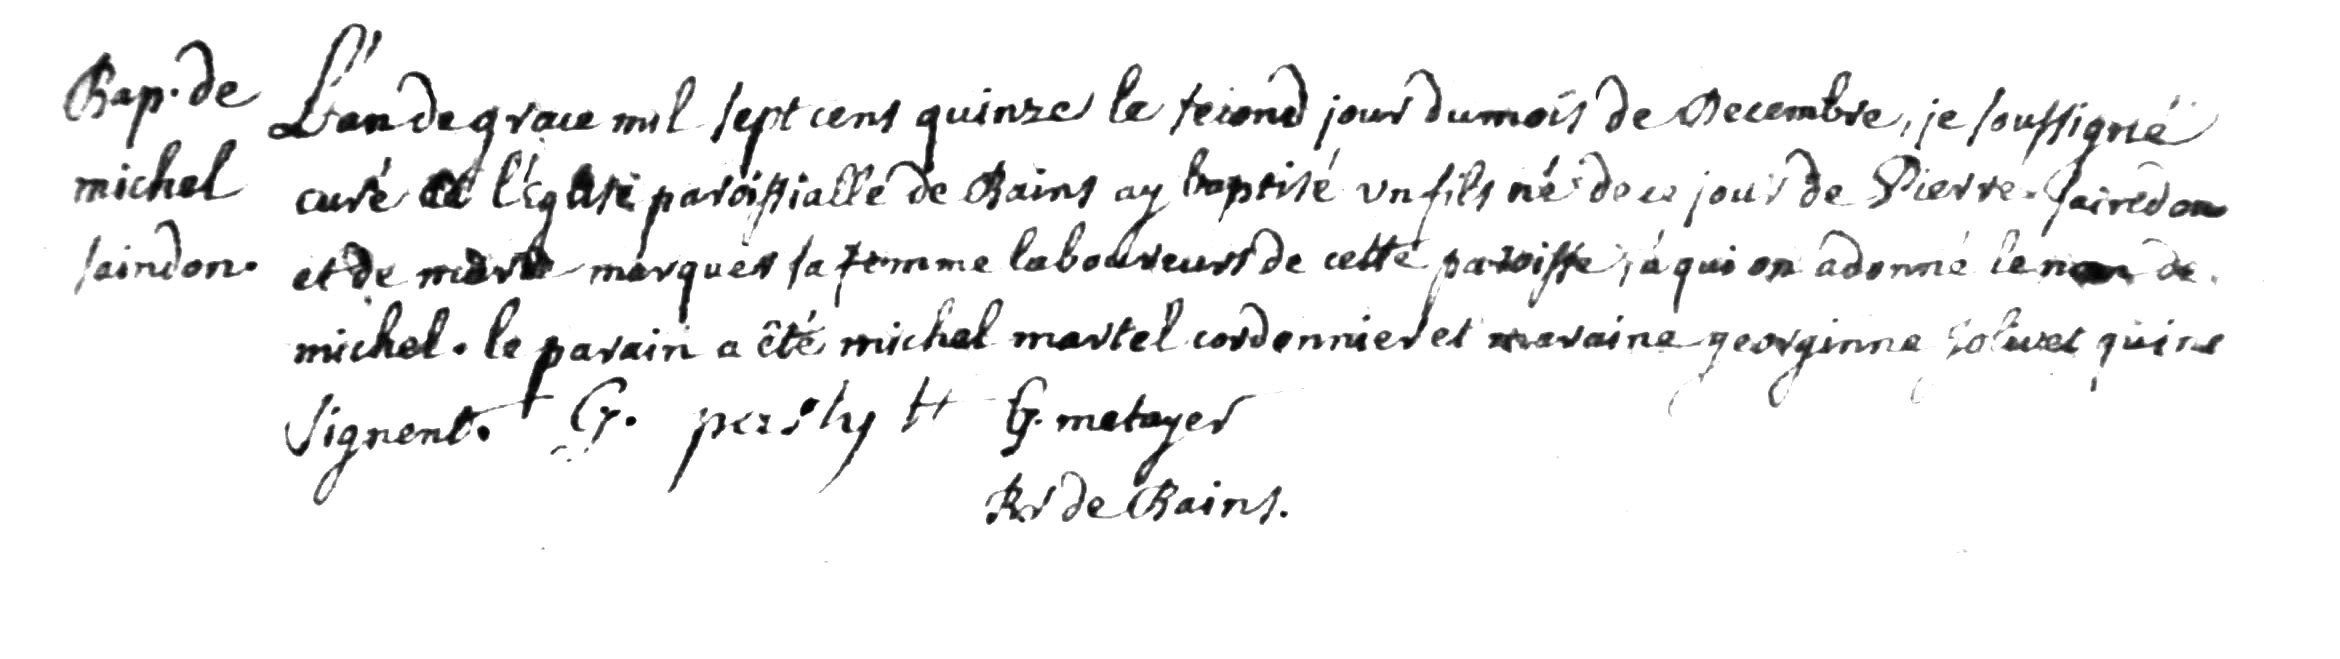 Bap. de
michel
saindon.
L'an de grace mil sept cens quinze le second jour du mois de Decembre, je soussigné
curé de l'Eglise paroissialle de Bains ay baptisé vn fils né de ce jour de Pierre Saindon
et de marie marques sa femme laboureurs de cette paroisse, à qui on a donné le nom de
michel. le parain a êté michel martel cordonnier et maraine georginne qui ne
signent. G. H G. metayer
Rr de Bains.